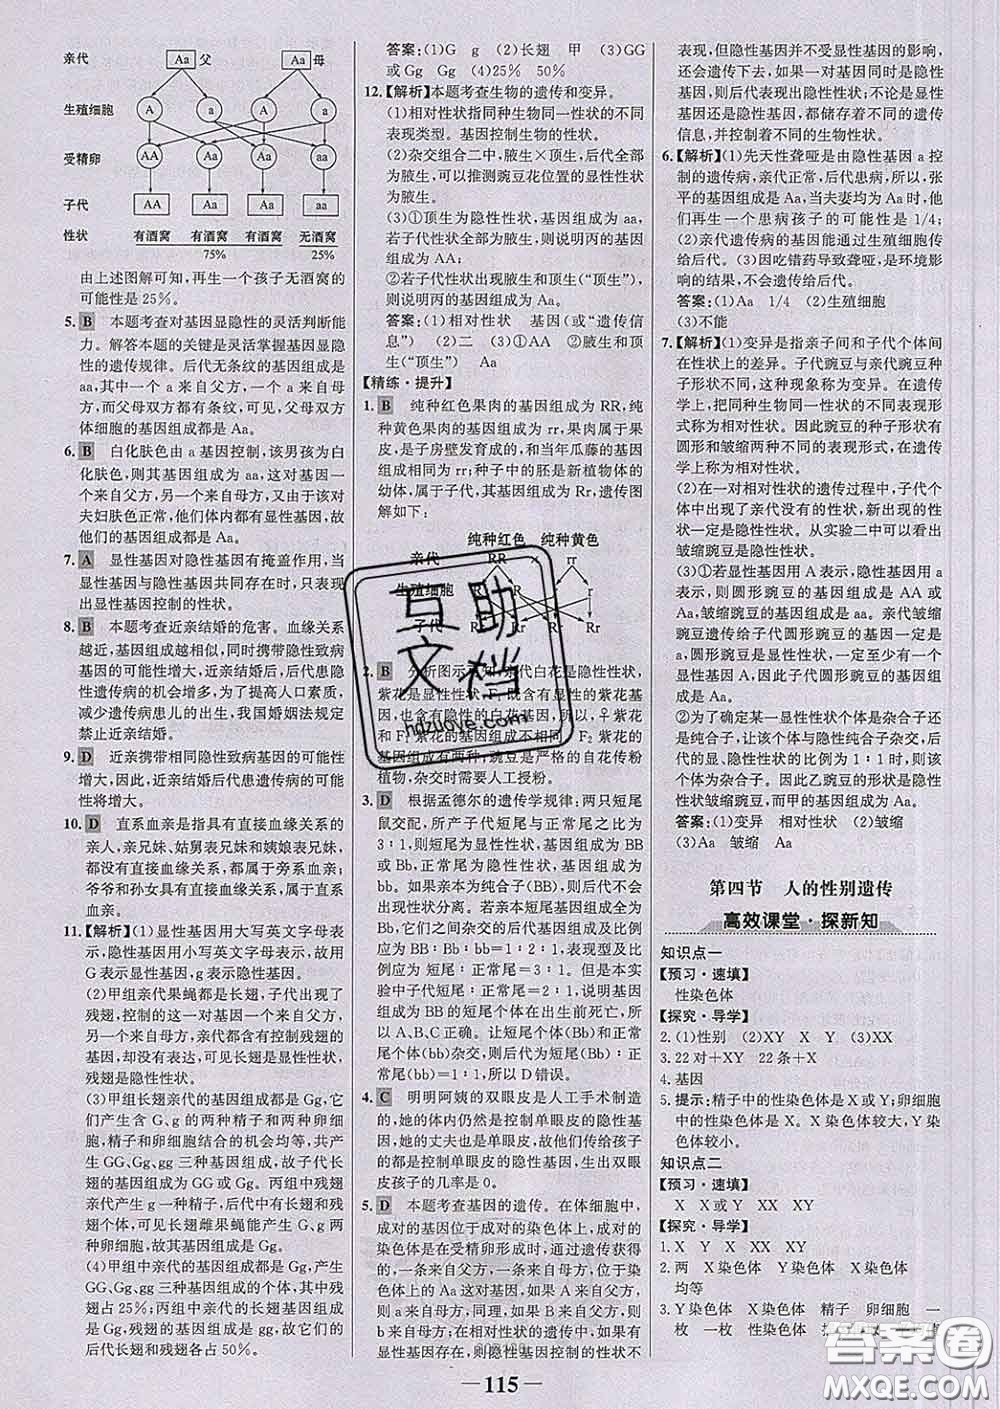 亲代 Aa 父 Aa 母
生殖细胞 A a A a
受精卵 AA Aa Aa aa
子代 AA Aa Aa aa
性状 有酒窝 有酒窝 有酒窝 无酒窝
75% 25%
由上述图解可知，再生一个孩子无酒窝的
可能性是25%。
5. B 本题考查对基因显隐性的灵活判断能
力。解答本题的关键是灵活掌握基因显隐
性的遗传规律。后代无条纹的基因组成是
aa，其中一个 a 来自父方，一个 a 来自母
方，而父母双方都有条纹，可见，父母双方
体细胞的基因组成都是Aa。
6. B 白化肤色由 a 基因控制，该男孩为白
化肤色，则其基因组成为aa，这对基因一
个来自父方，一个来自母方，又由于该对
夫妇肤色正常，他们体内都有显性基因，故
他们的基因组成都是 Aa。
7. A 显性基因对隐性基因有掩盖作用，当
显性基因与隐性基因共同存在时，只表现
出显性基因控制的性状。
8. B 本题考查近亲结婚的危害。血缘关系
越近，基因组成越相似，同时携带隐性致病
基因的可能性增大，近亲结婚后，后代患隐
性遗传病的机会增多，为了提高人口素质，
减少遗传病患儿的出生，我国婚姻法规定
禁止近亲结婚。
9. D 近亲携带相同隐性致病基因的可能性
增大，因此，近亲结婚后代患遗传病的可能
性将增大。
10. D 直系血亲是指具有直接血缘关系的
亲人，亲兄妹、姑舅表兄妹和姨娘表兄妹，
都没有直接血缘关系，都属于旁系血亲；
爷爷和孙女具有直接血缘关系，属于直系
血亲。
11.【解析】(1)显性基因用大写英文字母表
示，隐性基因用小写英文字母表示，故用
G表示显性基因，g表示隐性基因。
(2)甲组亲代果蝇都是长翅，子代出现了
残翅，控制的这一对基因一个来自父方，
一个来自母方，亲代都含有控制残翅的
基因，却没有表达，可见，长翅是显性性状，
残翅是隐性性状。
(3)甲组子代的基因组成都是Gg，它
们产生含 G、g 的两种精子和两种卵细
胞，精子和卵细胞结合的机会均等，共产
生 GG、Gg、gg 三种基因组成，故子代长
翅的基因组成为 GG 或 Gg。丙组中残翅
亲代产生 g 一种精子，后代中有长翅和残
翅个体，可见长翅雌果蝇能产生 G、g 两
种卵细胞，故其基因组成为 Gg。
(4)甲组中亲代的基因组成都是Gg，产生
GG、Gg、gg三种基因组成的个体，其中残
翅占25%；丙组中亲代的长翅个体基因组
成是Gg，残翅的基因组成是 gg，故后代中
长翅和残翅各占50%。
答案：(1)G g (2)长翅 甲 (3)GG
或 Gg Gg (4)25% 50%
12.【解析】本题考查生物的遗传和变异。
(1)相对性状指同种生物同一性状的不同
表现类型。基因控制生物的性状。
(2)杂交组合二中，腋生×顶生，后代全部
为腋生，可以推测豌豆花位置的显性性状
为腋生。
(3)①顶生为隐性性状，基因组成为aa，
若子代性状全部为腋生，则说明丙的基因
组成为AA。
②若子代性状出现腋生和顶生(“顶生”)，
则说明丙的基因组成为 Aa。
答案：(1)相对性状 基因(或“遗传信
息”) (2)二 (3)①AA ②腋生和顶生
(“顶生”) Aa
【精练·提升】
1. B 纯种红色果肉的基因组成为 RR，纯
种黄色果肉的基因组成为 rr，果肉属于果
皮，是子房壁发育成的，和当年瓜藤的基因
组成相同为 rr；种子中的胚是新植物体的
幼体，属于子代，其基因组成为Rr，遗传图
解如下：
纯种红色 纯种黄色
亲代 RR × rr
生殖细胞 r
子代 Rr Rr
紫花是显性性状，F₁既含有显性的紫花基
因，也含有隐性的白花基因，所以，♀紫花
和 F₁ 紫花的基因组成不相同，F₂ 紫花的
基因组成有两种，豌豆是严格的自花传粉
植物，杂交时需要人工授粉。
3. D 根据孟德尔的遗传学规律：两只短尾
鼠交配，所产子代短尾与正常尾之比为
3∶1，则短尾为显性性状，基因组成为 BB
或 Bb，正常尾为隐性性状，基因组成为 bb。
如果亲本一方为纯合子(BB)，则其后代不
会出现性状分离。若亲本短尾个体都是
Bb，它们之间杂交后代基因组成及比例
应为 BB∶Bb∶bb=1∶2∶1，表现型及比
例应为 短尾∶正常尾=3∶1。但本实
验中子代短尾∶正常尾=2∶1，说明基因
组成为 BB 的短尾个体在出生前死亡，所
以 A、B、C正确。让短尾个体(Bb)和正常
尾个体(bb)杂交，则后代为短尾(Bb)∶正
常尾(bb)=1∶1，所以 D 错误。
4. C 明明阿姨的双眼皮是人工手术制造
的，她的体内仍然是控制单眼皮的隐性基
因，她的丈夫也是单眼皮，而传给孩子的
都是控制单眼皮的隐性基因，生出双眼
皮孩子的几率是 0。
5. D 本题考查基因的遗传。在体细胞中，
成对的基因位于成对的染色体上，成对的
染色体是在受精卵形成时，通过遗传获得
的，一条来自父方，一条来自母方，因此基
因也是一个来自父方，一个来自母方，如果
a来自父方，则 a 来自母方，同理，如果 B 来自父方，则
在相对性状的遗传中，如果显性基因控制的性状得以
显性基因存在，则隐性基因控制的性状不
表现，但隐性基因并不受显性基因的影响，
还会遗传下去。如果一对基因同时是隐性
基因，则后代表现隐性性状；不论是显性基
因还是隐性基因，都储存着大量的遗传
信息，并控制着不同的生物性状。
6.【解析】(1)先天性聋哑是由隐性基因 a 控
制的遗传病，亲代正常，后代患病，所以，张
平的基因组成是Aa，当夫妻均为 Aa 时，他
们再生一个患病孩子的可能性是 1/4；
(2)亲代遗传病的基因能通过生殖细胞传
给后代。(3)因吃错药导致聋哑，是环境影
响的结果，不会遗传给后代。
答案：(1)Aa 1/4 (2)生殖细胞
(3)不能
7.【解析】(1)变异是指亲子间和子代个体间
在性状上的差异。子代豌豆与亲代豌豆种
子形状不同，这种现象称为变异。在遗传
学上，把同种生物同一性状的不同表现形
式称为相对性状。因此豌豆种子的形状有
圆形和皱缩两种不同的表现形式，在遗传
学上称为相对性状。
(2)在一对相对性状的遗传过程中，子代个
体中出现了亲代没有的性状，新出现的性
状一定是隐性性状。从实验二中可以看出
皱缩豌豆是隐性性状。
(3)①若显性基因用 A 表示，隐性基因用 a
表示，则圆形豌豆的基因组成是 AA 或
Aa，皱缩豌豆的基因组成是 aa。亲代皱缩
豌豆遗传给子代圆形豌豆的基因一定是
a，因此子代圆形豌豆的基因组成是
Aa。
②为了确定某一显性性状个体是杂合子还
是纯合子，让该个体与隐性纯合子杂交，后
代显性性状与隐性性状的比例为 1∶1 时，
则该个体为杂合子。因此乙豌豆的形状是隐性
皱缩豌豆，而甲的基因组成为Aa。
答案：(1)变异 相对性状 (2)皱缩
(3)Aa 皱缩 Aa
第四节 人的性别遗传
高效课堂·探新知
知识点一
【预习·速填】
性染色体
【探究·导学】
2. (1)性别 (2)XY X Y (3)XX
3. 22 对+XY 22 条+X
4. 基因
5. 提示：精子中的性染色体是 X 或 Y；卵细胞
中的性染色体是 X。X 染色体较大，Y染
色体较小。
知识点二
【预习·速填】
X X或Y XX XY
【探究·导学】
1. X Y XX XY X X
2. 两 X染色体 Y染色体 X染色体
均等
3. Y染色体 X染色体 精子 卵细胞 一
枚 一枚 性染色体
— 115 —
互助
文档
hdzuoye.com
答案圈
MXQE.COM